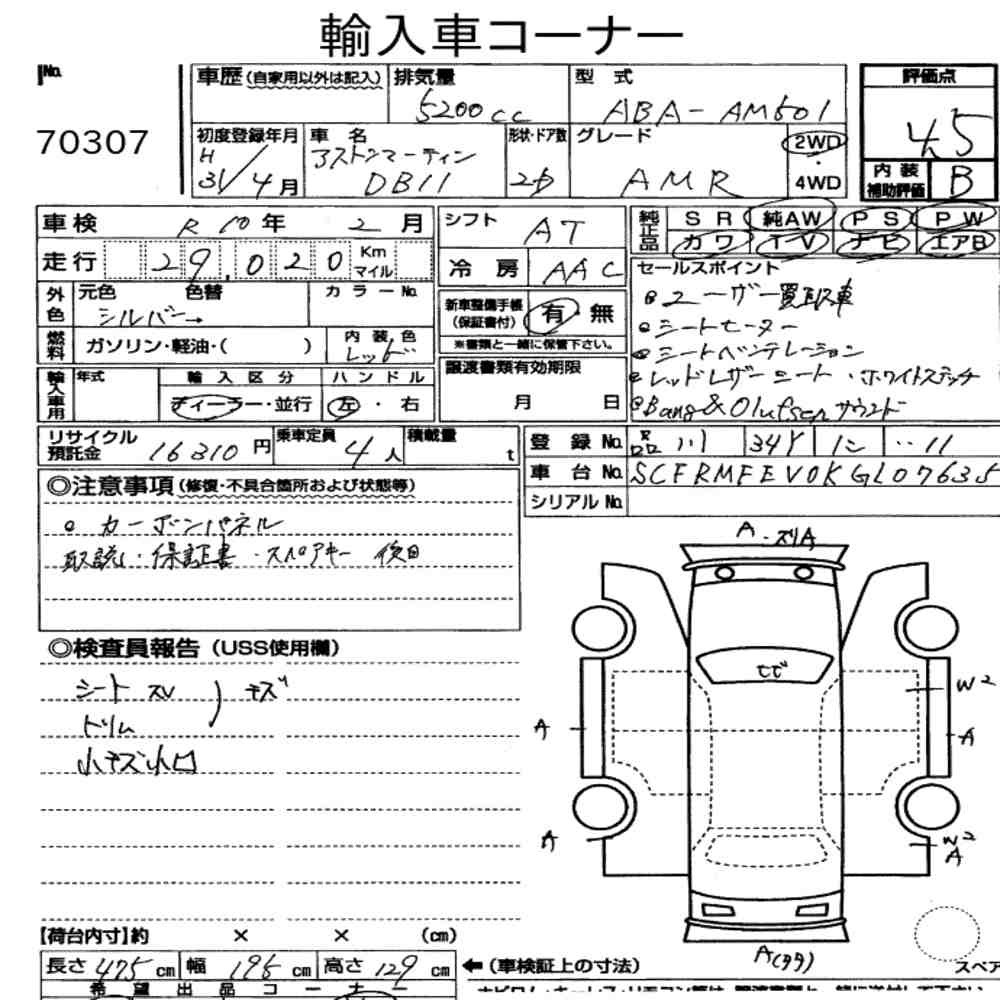 輸入車コーナー
No.
70307
車歴(自家用以外は記入) 排気量 5200cc 型式 ABA-AM501
評価点 4.5
初度登録年月 H31/4月 車名 アストンマーティン DB11 形状・ドア数 2D グレード AMR 2WD・4WD
内装補助評価 B
車検 R10年2月 シフト AT
純正品 SR 純AW PS PW
カワ TV ナビ エアB
走行 29,020 Km マイル 冷房 AAC
セールスポイント
ユーザー買取車
シートヒーター
シートベンチレーション
レッドレザーシート・ホワイトステッチ
Bang&Olufsenサウンド
外色 元色 シルバー→ 色替 カラーNo.
新車整備手帳(保証書付) 有・無
※書類と一緒に保管下さい。
燃料 ガソリン・軽油・( ) 内装色 レッド
譲渡書類有効期限
月 日
輸入車用 年式 輸入区分 ハンドル
ディーラー・並行 左・右
リサイクル預託金 16310円 乗車定員 4人 積載量 t
登録No. 品川 34
車台No. SCFRMFEV0KGL07635
シリアルNo.
◎注意事項(修復・不具合箇所および状態等)
カーボンパネル
取説・保証書・スペアキー 後日
◎検査員報告(USS使用欄)
シート スレ ) キズ
トリム
小キズ小凹
A・スリA
トビ
W2
A
A
A
W2
A
A(タタ)
【荷台内寸】約 × × (cm)
長さ 475cm 幅 195cm 高さ 129cm ←(車検証上の寸法)
スペア
希望出品コーナー